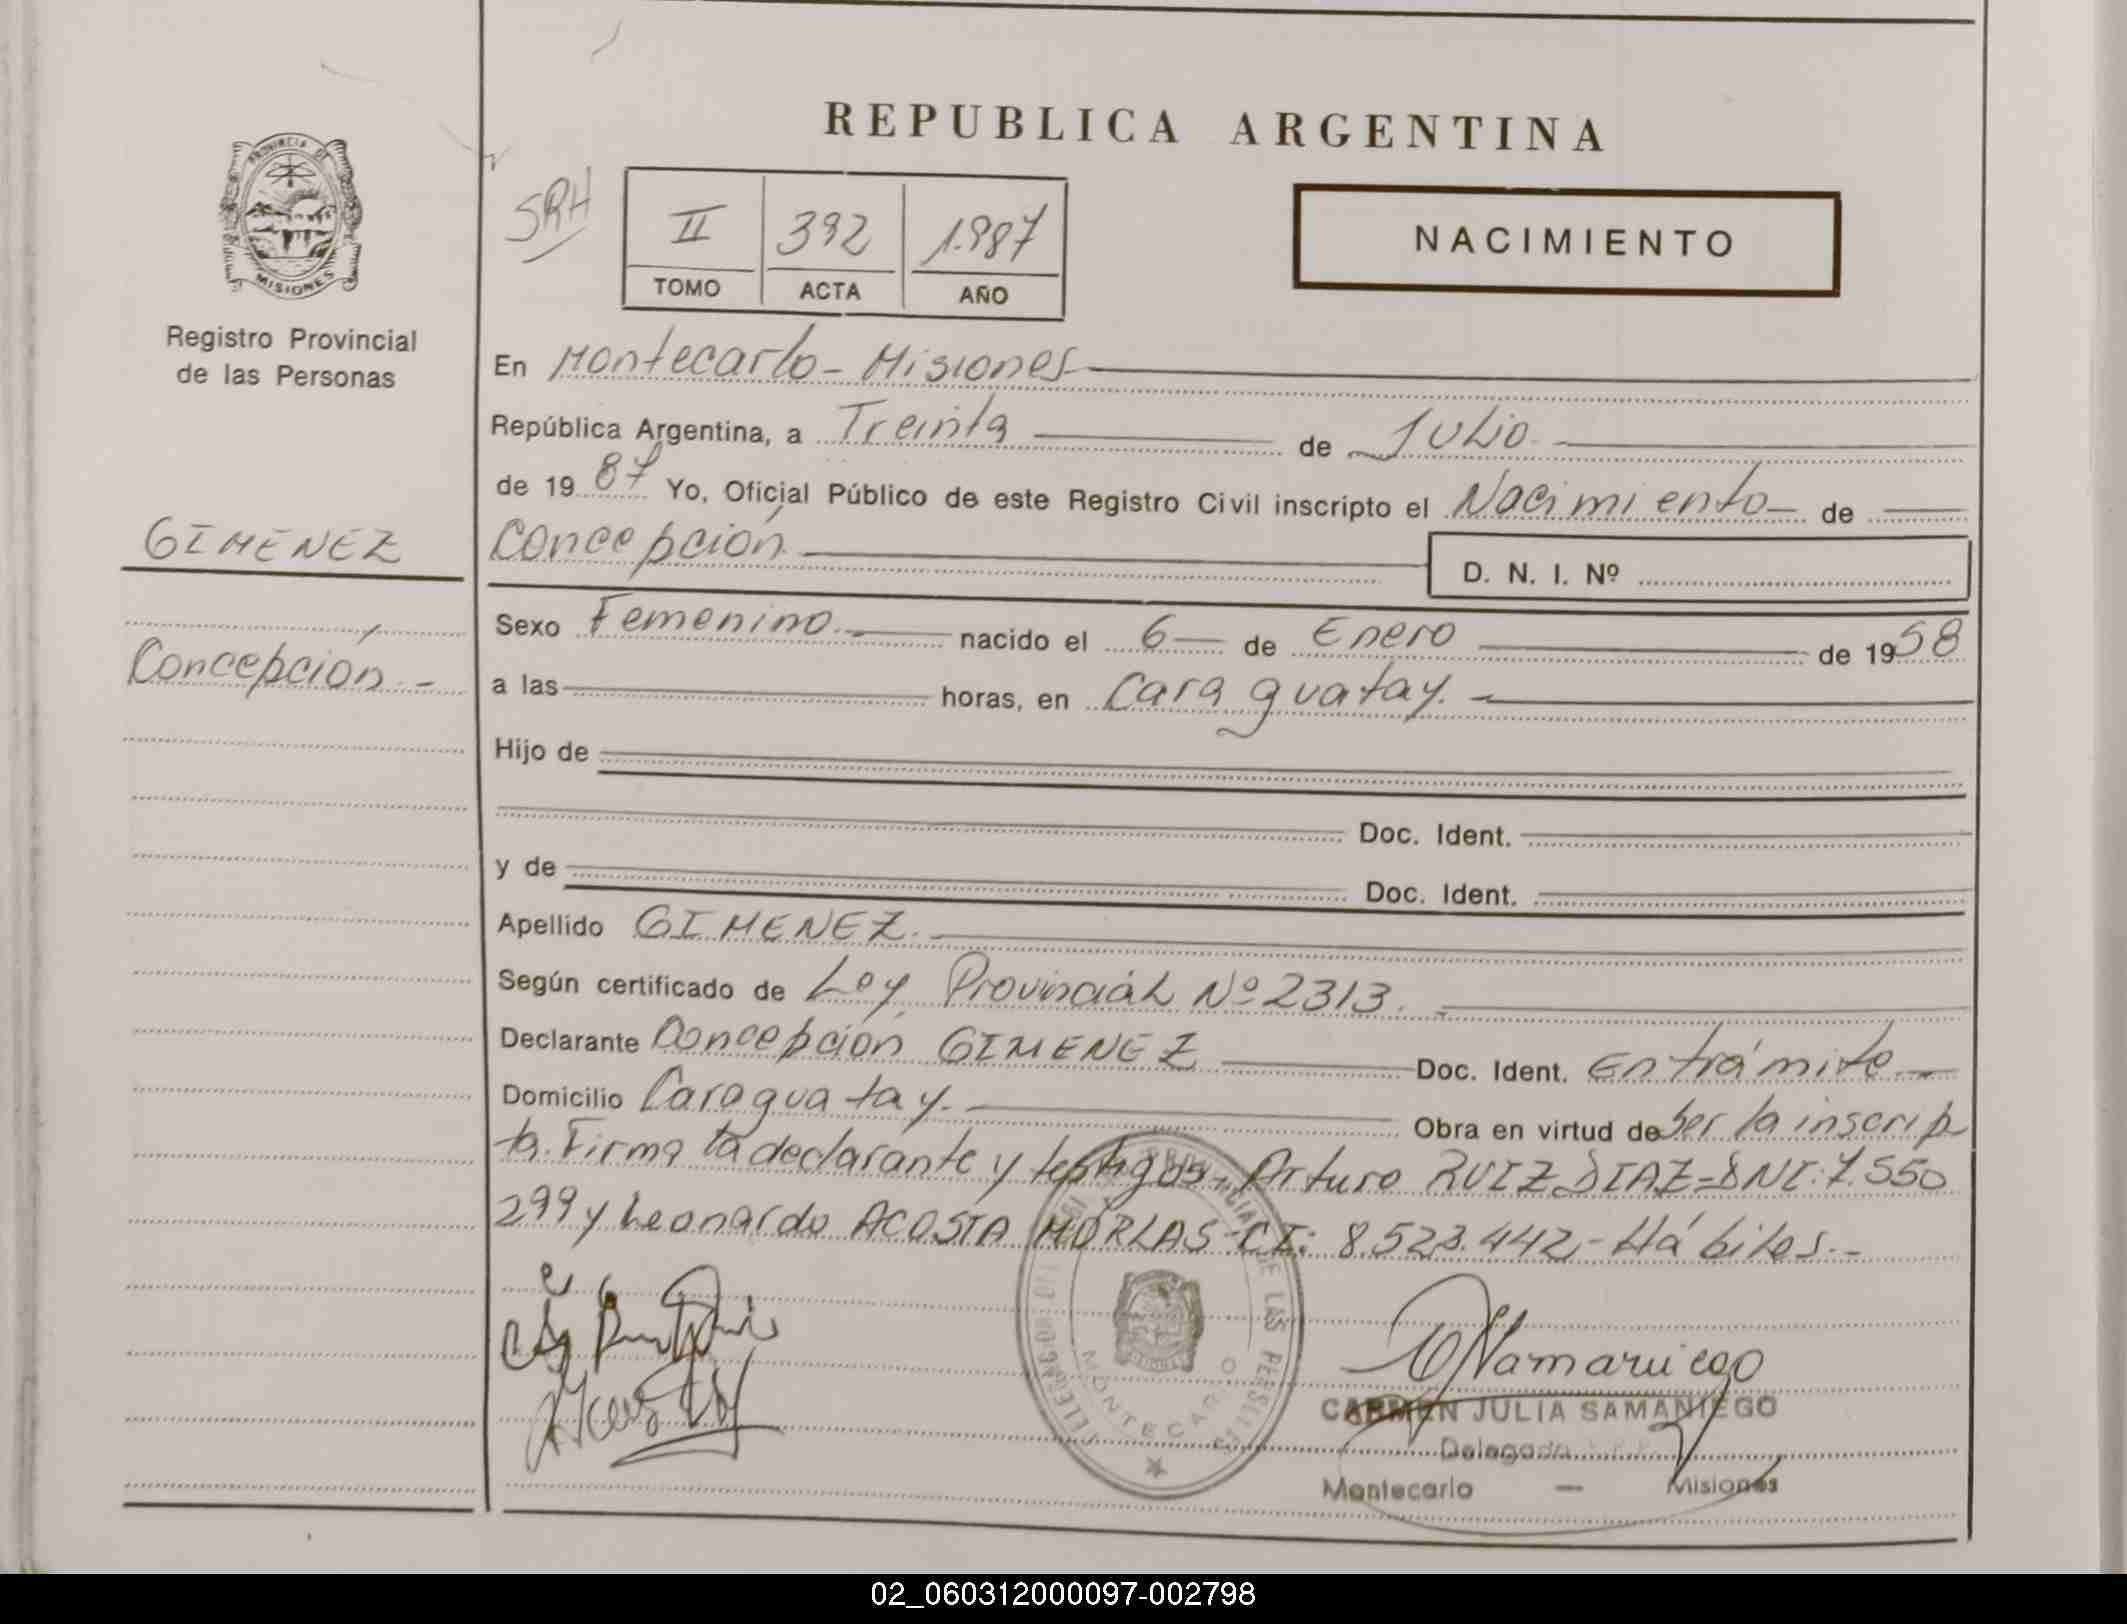 REPUBLICA ARGENTINA
PROVINCIA DE
MISIONES
Registro Provincial
de las Personas
SRH
II 392 1.987
TOMO ACTA AÑO
NACIMIENTO
En Montecarlo - Misiones
República Argentina, a Treinta de Julio
de 1987 Yo, Oficial Público de este Registro Civil inscripto el Nacimiento de
GIMENEZ
Concepción
D. N. I. Nº
Concepción.-
Sexo Femenino nacido el 6 de Enero de 1958
a las horas, en Caraguatay.
Hijo de
Doc. Ident.
y de Doc. Ident.
Apellido GIMENEZ.
Según certificado de Ley Provincial Nº 2313.
Declarante Concepción GIMENEZ Doc. Ident. En trámite
Domicilio Caraguatay. Obra en virtud de Ser la inscrip
ta. Firma la declarante y testigos. Arturo RUIZ DIAZ=DNI:7.550
299 y Leonardo ACOSTA MORLAS-CI: 8.523.442,- Hábiles.-
PROVINCIAL DE LAS PERSONAS
MONTECARLO
CARMEN JULIA SAMANIEGO
Delegada
Montecarlo — Misiones
02_060312000097-002798